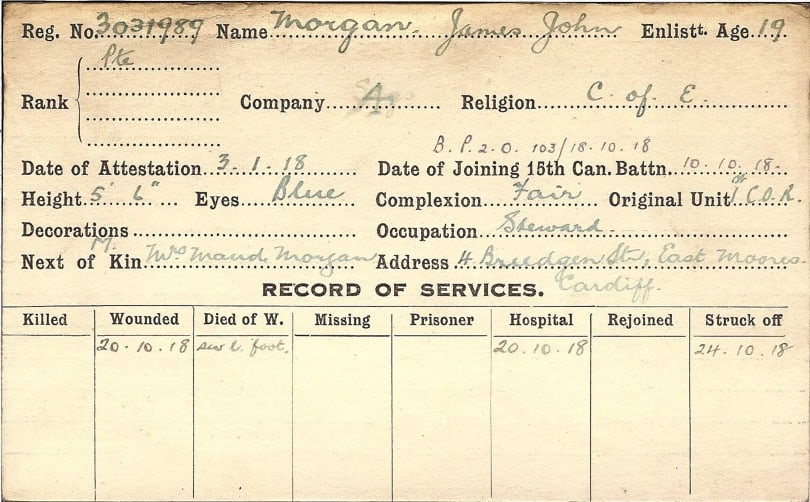 Reg. No. 3031989 Name Morgan. James John Enlistt. Age 19.
Pte
Rank Company A Religion C. of E.
B. P. 2. O. 103/18.10.18
Date of Attestation 3-1-18 Date of Joining 15th Can. Battn. 10.10.18.
Height 5' 6" Eyes Blue Complexion Fair Original Unit 1st C.O.R.
Decorations Occupation Steward.
M.
Next of Kin Mrs Maud Morgan Address 4 St., East Moores.
Cardiff.
RECORD OF SERVICES.
Killed Wounded Died of W. Missing Prisoner Hospital Rejoined Struck off
20.10.18 l. foot. 20.10.18 24.10.18